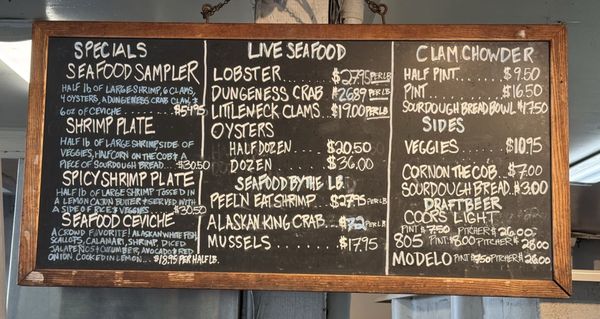 SPECIALS
SEAFOOD SAMPLER
HALF LB OF LARGE SHRIMP, 6 CLAMS,
4 OYSTERS, A DUNGENESS CRAB CLAW &
6OZ OF CEVICHE
SHRIMP PLATE
HALF LB OF LARGE SHRIMP, SIDE OF
VEGGIES, HALF CORN ON THE COB & A
PIECE OF SOURDOUGH BREAD... $30.50
SPICY SHRIMP PLATE
HALF LB OF LARGE SHRIMP TOSSED IN
A LEMON CAJUN BUTTER & SERVED WITH
A SIDE OF RICE & VEGGIES... $30.50
SEAFOOD CEVICHE
A CROWD FAVORITE! ALASKAN WHITE FISH,
SCALLOPS, CALAMARI, SHRIMP, DICED
JALAPENOS & CUCUMBER, AVOCADO & RED
ONION COOKED IN LEMON... $18.95 PER HALF LB.
LIVE SEAFOOD
LOBSTER........ $27.95 PER LB
DUNGENESS CRAB $26.89 PER LB
LITTLENECK CLAMS.. $19.00 PER LB
OYSTERS
HALF DOZEN...... $20.50
DOZEN........ $36.00
SEAFOOD BY THE LB.
PEEL N EAT SHRIMP.. $27.95 PER LB
ALASKAN KING CRAB.. PER LB
MUSSELS......... $17.95
CLAM CHOWDER
HALF PINT........ $9.50
PINT........... $16.50
SOURDOUGH BREAD BOWL.. $17.50
SIDES
VEGGIES....... $10.95
CORN ON THE COB... $7.00
SOURDOUGH BREAD... $3.00
DRAFT BEER
COORS LIGHT
PINT $7.50 PITCHER $26.00
805 PINT $8.00 PITCHER $28.00
MODELO PINT $7.50 PITCHER $26.00